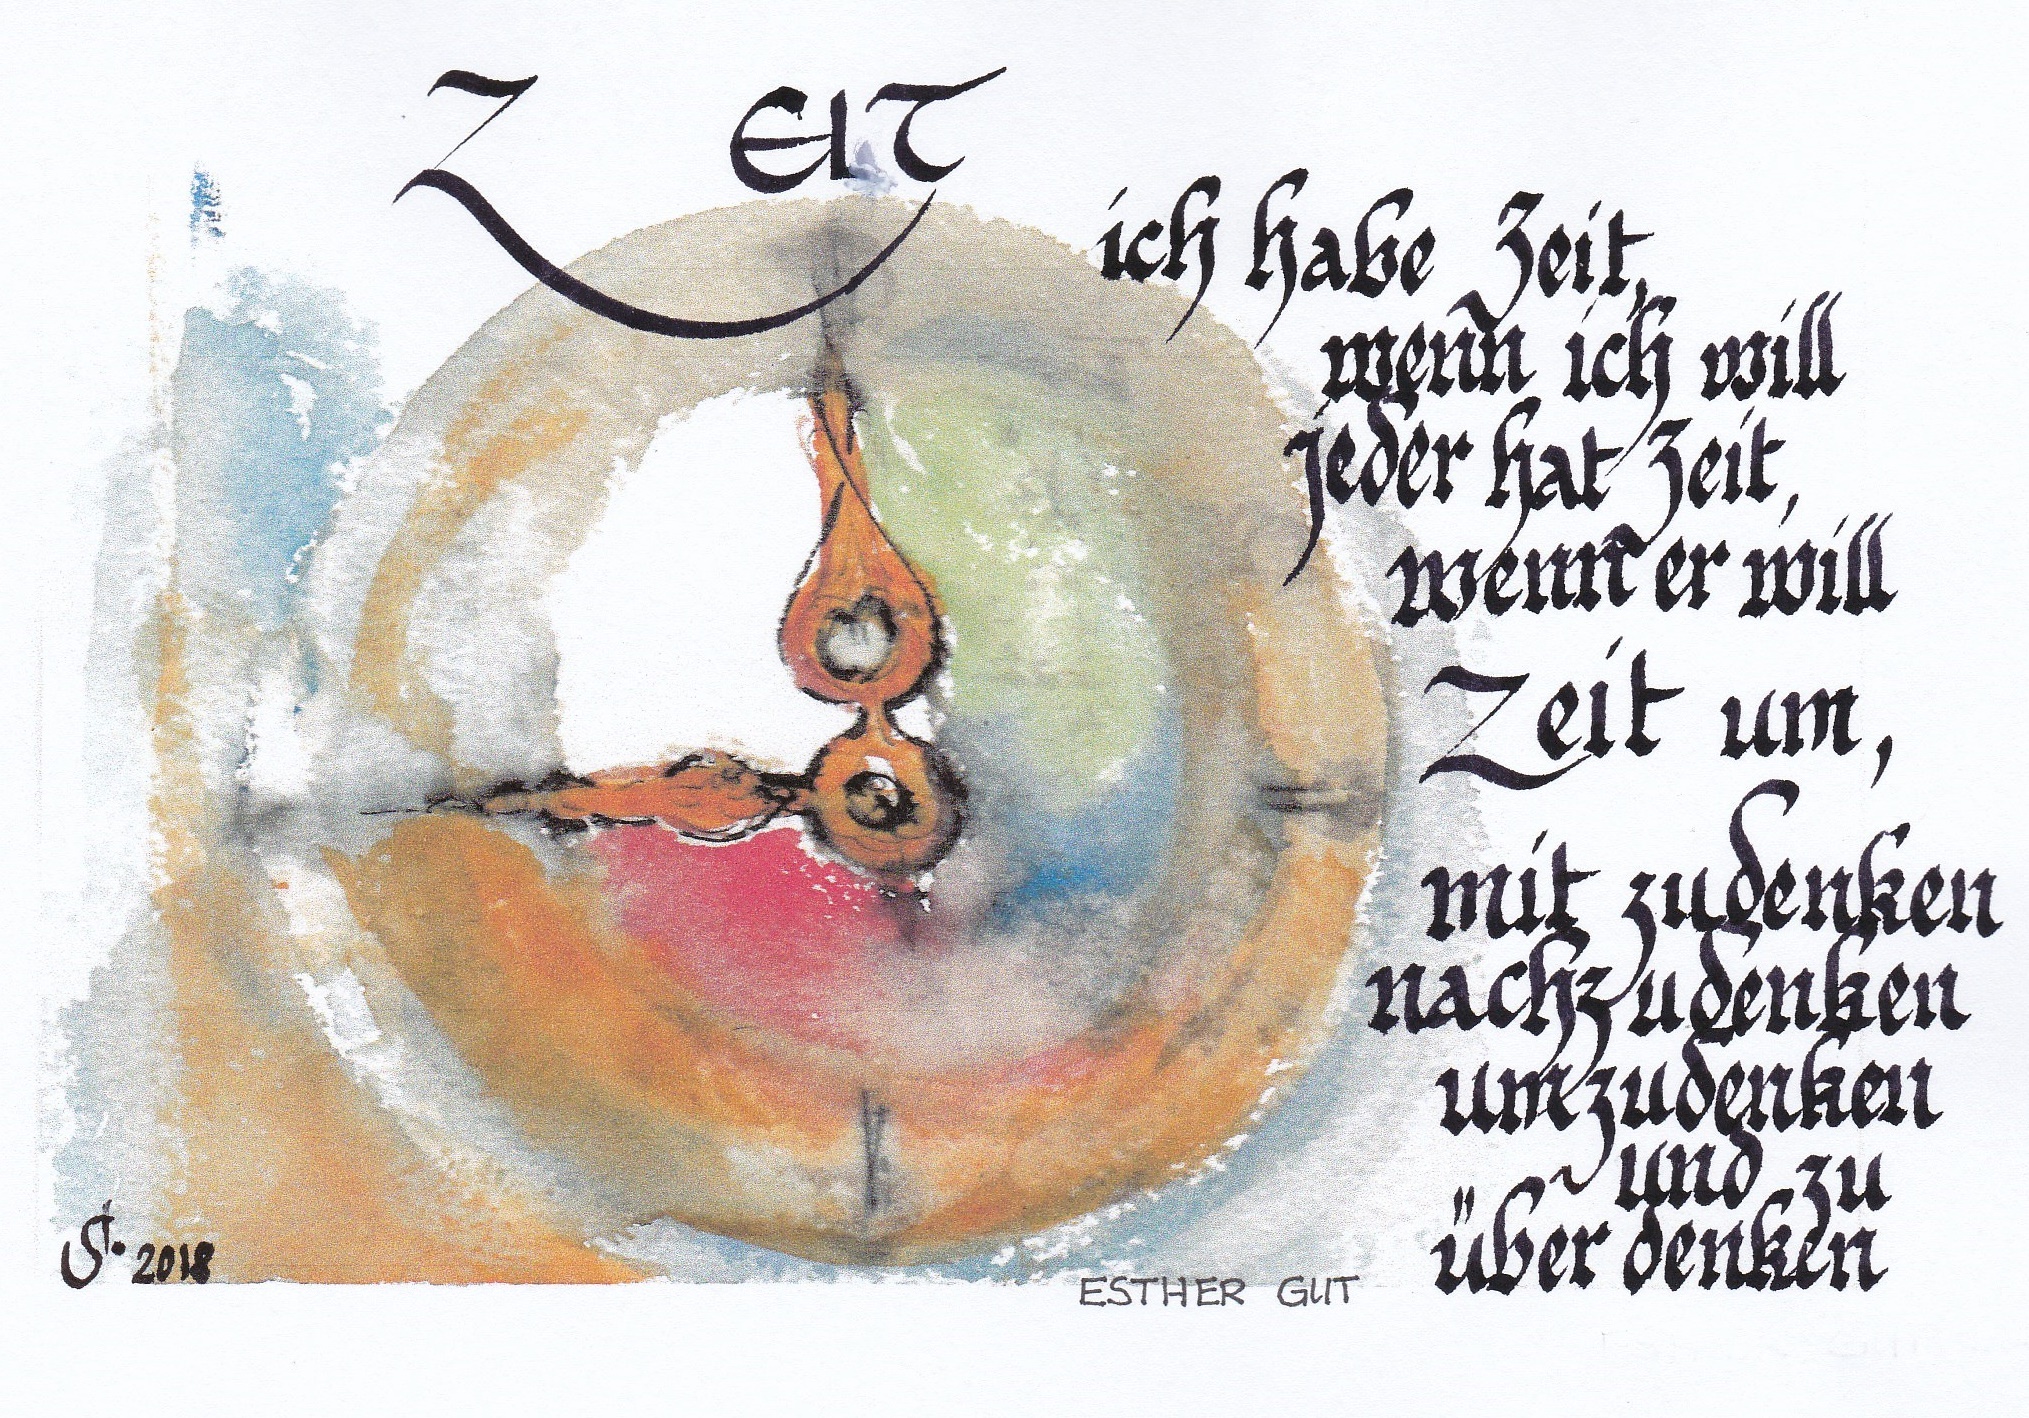 ZEIT
ich habe Zeit,
wenn ich will
jeder hat Zeit,
wenn er will
Zeit um,
mit zudenken
nachzudenken
umzudenken
und zu
über denken
2018
ESTHER GUT